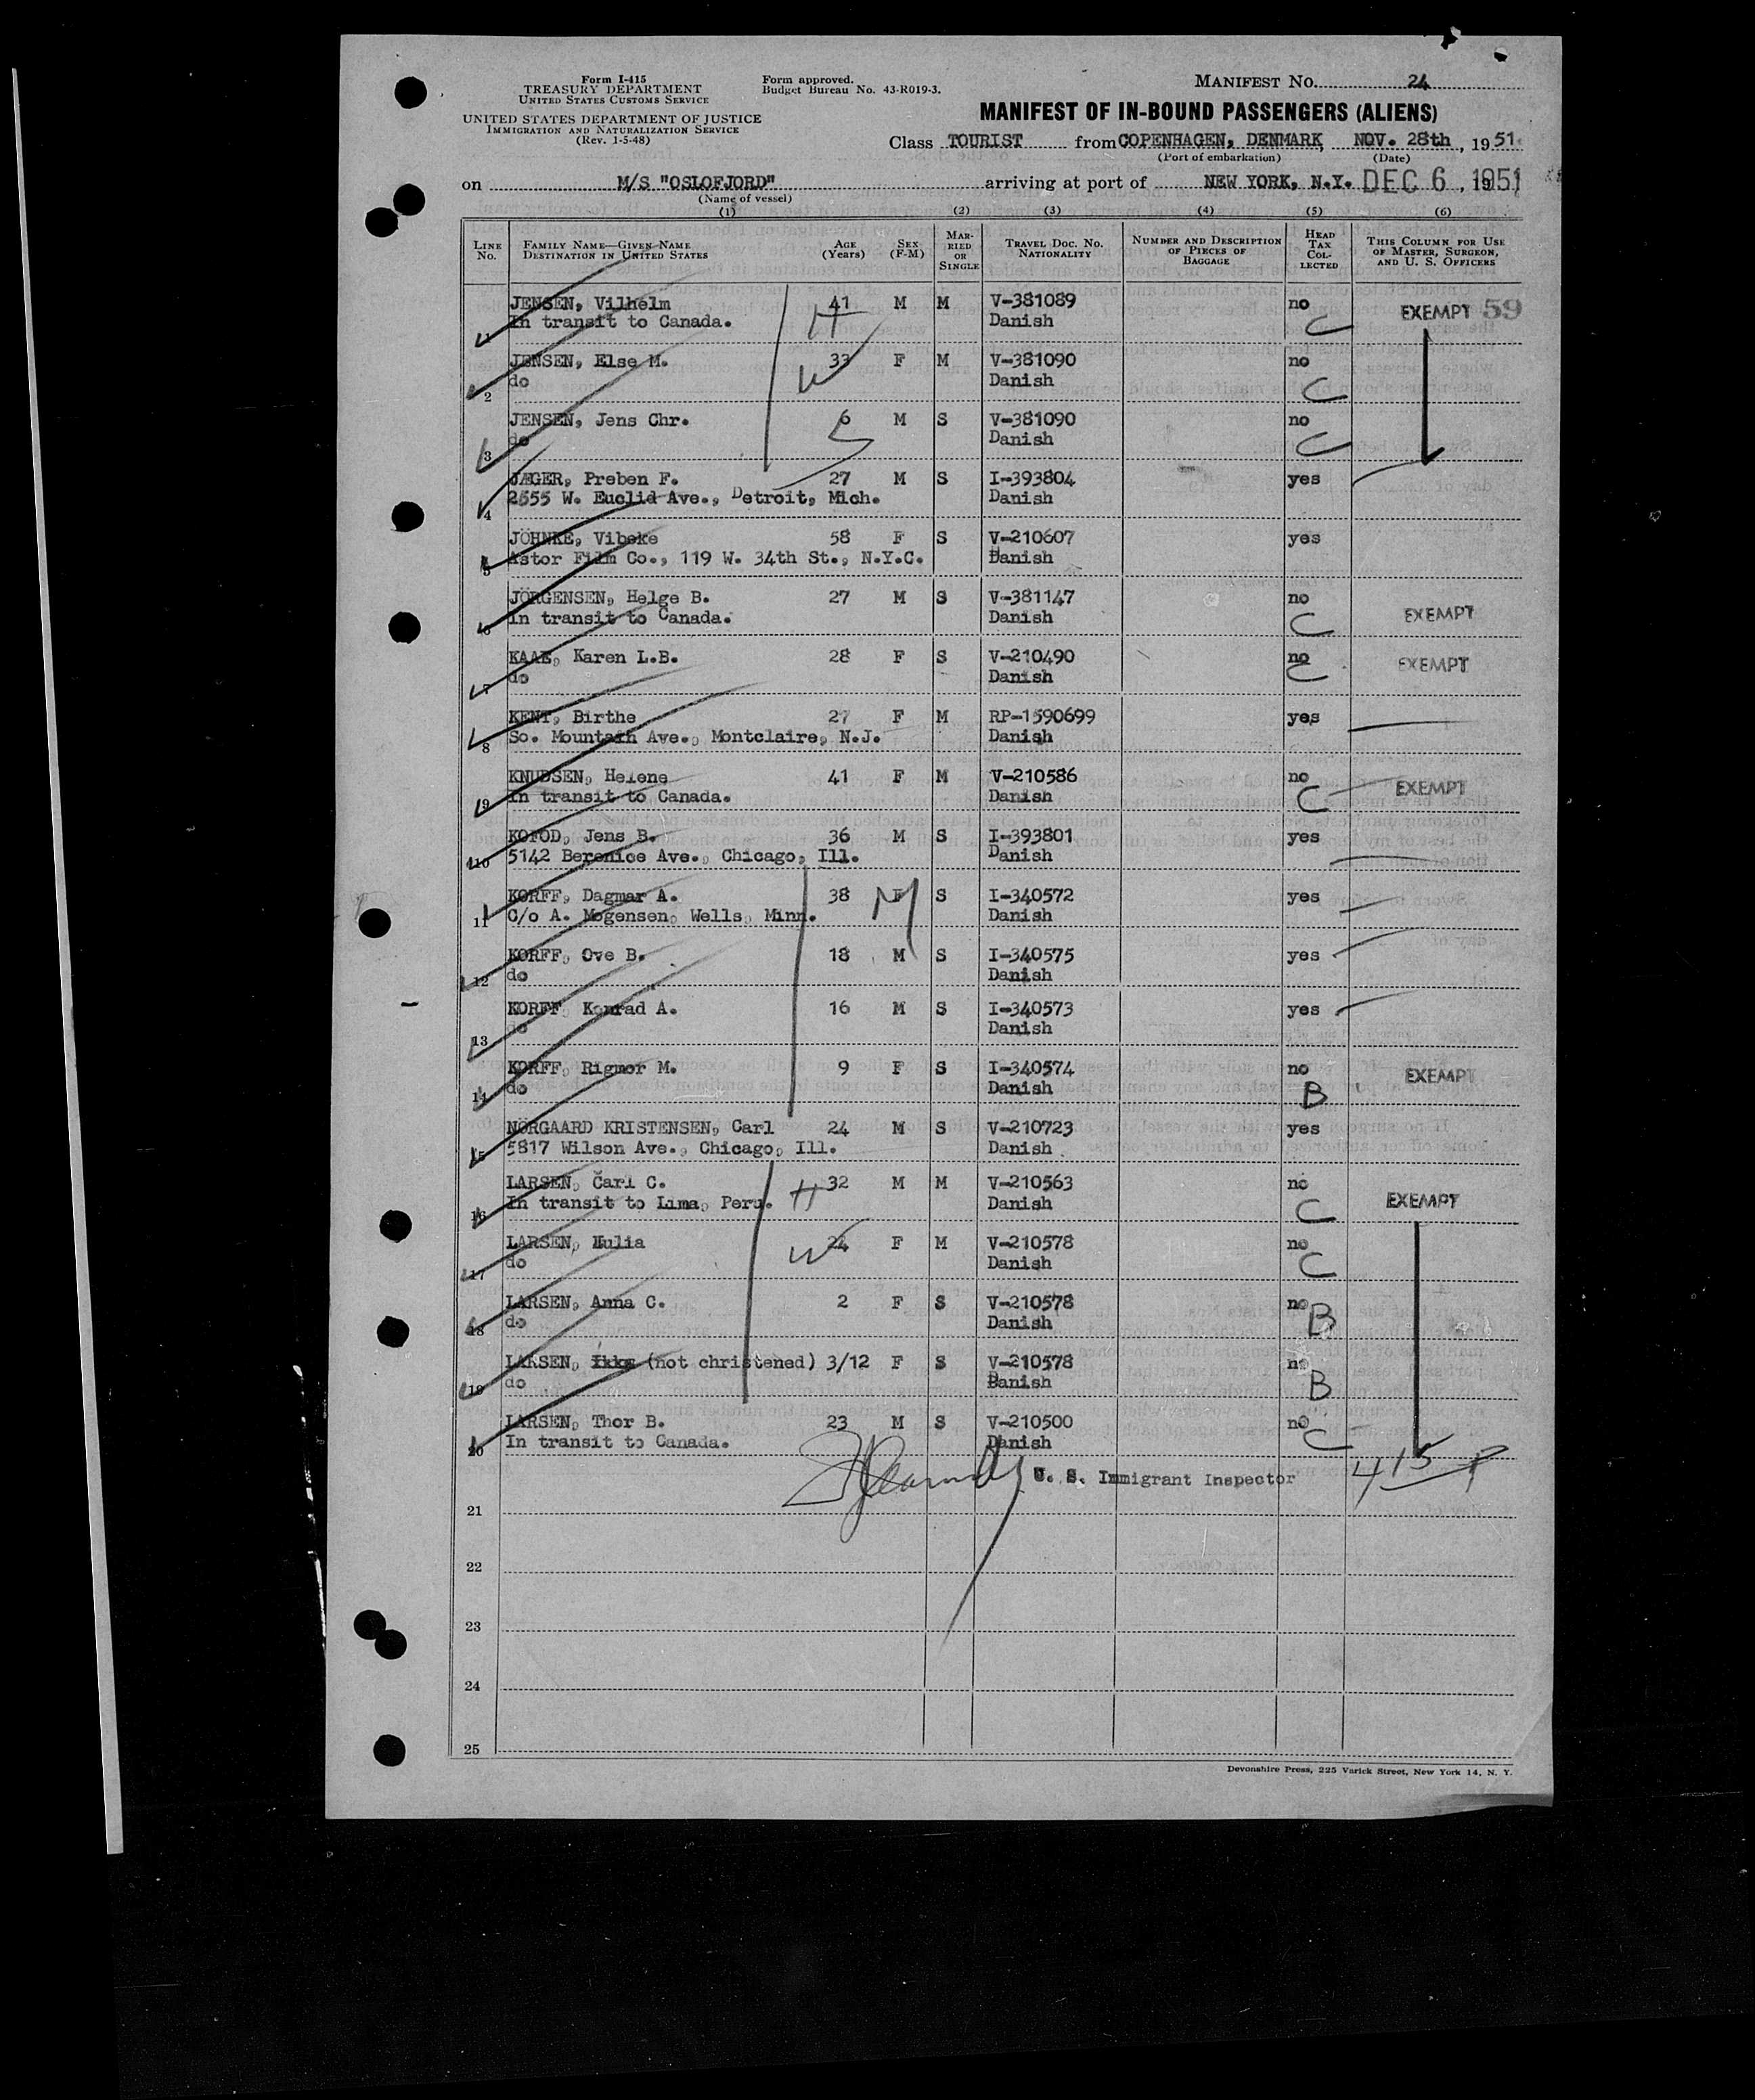 Form I-415
TREASURY DEPARTMENT
UNITED STATES CUSTOMS SERVICE
UNITED STATES DEPARTMENT OF JUSTICE
IMMIGRATION AND NATURALIZATION SERVICE
(Rev. 1-5-48)
Form approved.
Budget Bureau No. 43-R019-3.
MANIFEST No. 24
MANIFEST OF IN-BOUND PASSENGERS (ALIENS)
Class TOURIST from COPENHAGEN, DENMARK, NOV. 28th, 1951.
(Port of embarkation) (Date)
on M/S "OSLOFJORD" arriving at port of NEW YORK, N.Y. DEC 6, 1951
(Name of vessel)
(1) (2) (3) (4) (5) (6)
LINE No. FAMILY NAME—GIVEN NAME DESTINATION IN UNITED STATES AGE (Years) SEX (F-M) MARRIED OR SINGLE TRAVEL DOC. No. NATIONALITY NUMBER AND DESCRIPTION OF PIECES OF BAGGAGE HEAD TAX COLLECTED THIS COLUMN FOR USE OF MASTER, SURGEON, AND U. S. OFFICERS
JENSEN, Vilhelm 41 M M V-381089 no EXEMPT 59
1 In transit to Canada. H Danish C
JENSEN, Else M. 33 F M V-381090 no
2 do W Danish C
JENSEN, Jens Chr. 6 M S V-381090 no
3 do S Danish C
JÆGER, Preben F. 27 M S I-393804 yes
4 2555 W. Euclid Ave., Detroit, Mich. Danish
JÖHNKE, Vibeke 58 F S V-210607 yes
5 Astor Film Co., 119 W. 34th St., N.Y.C. Danish
JÖRGENSEN, Helge B. 27 M S V-381147 no EXEMPT
6 In transit to Canada. Danish C
KAAE, Karen L.B. 28 F S V-210490 no EXEMPT
7 do Danish C
KENT, Birthe 27 F M RP-1590699 yes
8 So. Mountain Ave., Montclaire, N.J. Danish
KNUDSEN, Helene 41 F M V-210586 no EXEMPT
9 In transit to Canada. Danish C
KOFOD, Jens B. 36 M S I-393801 yes
10 5142 Berenice Ave., Chicago, Ill. Danish
KORFF, Dagmar A. 38 M S I-340572 yes
11 C/o A. Mogensen, Wells, Minn. Danish
KORFF, Ove B. 18 M S I-340575 yes
12 do Danish
KORFF, Konrad A. 16 M S I-340573 yes
13 do Danish
KORFF, Rigmor M. 9 F S I-340574 no EXEMPT
14 do Danish B
NÖRGAARD KRISTENSEN, Carl 24 M S V-210723 yes
15 5817 Wilson Ave., Chicago, Ill. Danish
LARSEN, Carl C. 32 M M V-210563 no EXEMPT
16 In transit to Lima, Peru. H Danish C
LARSEN, 24 F M V-210578 no
17 do W Danish C
LARSEN, Anna C. 2 F S V-210578 no
18 do Danish B
LARSEN, (not christened) 3/12 F S V-210578 no
19 do Danish B
LARSEN, Thor B. 23 M S V-210500 no
20 In transit to Canada. Danish C
U. S. Immigrant Inspector
21
22
23
24
25
Devonshire Press, 225 Varick Street, New York 14, N. Y.